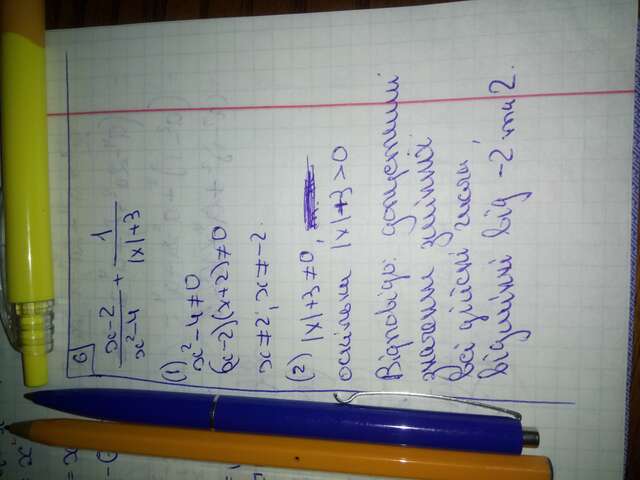 6
x-2/x²-4 + 1/|x|+3
(1) x²-4≠0
(x-2)(x+2)≠0
x≠2; x≠-2.
(2) |x|+3≠0,
оскільки |x|+3>0
Відповідь: допустимі
значення змінної
всі дійсні числа,
відмінні від -2 та 2.